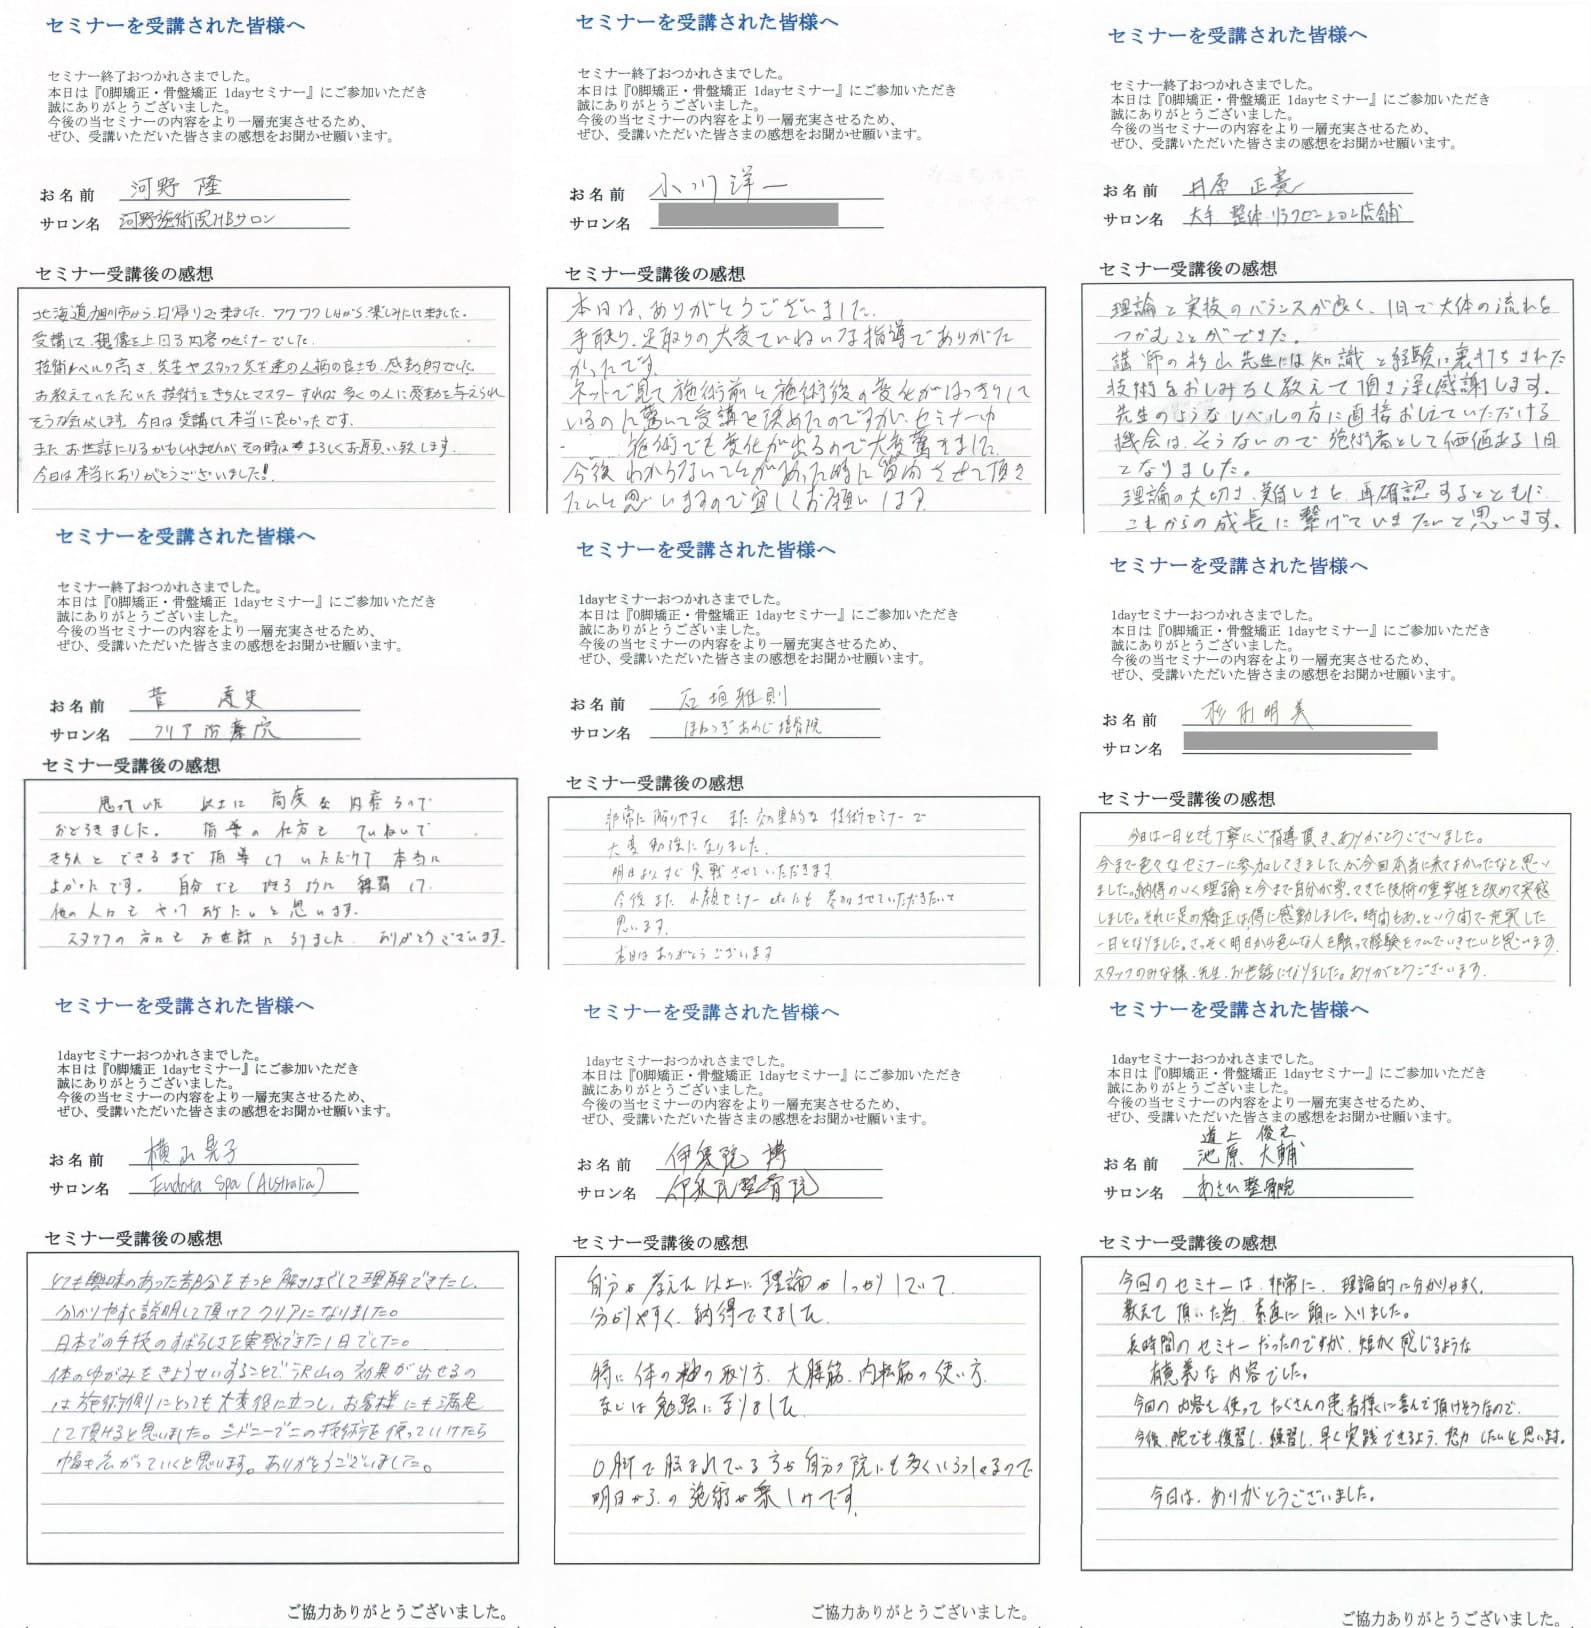 セミナーを受講された皆様へ
セミナー終了おつかれさまでした。
本日は『O脚矯正・骨盤矯正 1dayセミナー』にご参加いただき
誠にありがとうございました。
今後の当セミナーの内容をより一層充実させるため、
ぜひ、受講いただいた皆さまの感想をお聞かせ願います。
お名前 河野 隆
サロン名 河野施術院HBサロン
セミナー受講後の感想
北海道旭川市から日帰りで来ました。ワクワクしながら楽しみにして来ました。
受講して、想像を上回る内容のセミナーでした。
技術レベルの高さ、先生やスタッフ先生達の人柄の良さも感動的でした。
お教えていただいた技術をきちんとマスターすれば多くの人に感動を与えられ
そうな気がします。今日は受講して本当に良かったです。
またお世話になるかもしれませんがその時はよろしくお願い致します。
今日は本当にありがとうございました!
セミナーを受講された皆様へ
セミナー終了おつかれさまでした。
本日は『O脚矯正・骨盤矯正 1dayセミナー』にご参加いただき
誠にありがとうございました。
今後の当セミナーの内容をより一層充実させるため、
ぜひ、受講いただいた皆さまの感想をお聞かせ願います。
お名前 小川洋一
サロン名
セミナー受講後の感想
本日は、ありがとうございました。
手取り、足取りの大変ていねいな指導でありがた
かったです。
ネットで見て施術前と施術後の変化がはっきりして
いるのに驚いて受講を決めたのですが、セミナー中
施術でも変化が出るので大変驚きました。
今後わからないことがあった時に質問させて頂き
たいと思いますので宜しくお願いします。
セミナーを受講された皆様へ
セミナー終了おつかれさまでした。
本日は『O脚矯正・骨盤矯正 1dayセミナー』にご参加いただき
誠にありがとうございました。
今後の当セミナーの内容をより一層充実させるため、
ぜひ、受講いただいた皆さまの感想をお聞かせ願います。
お名前 井原 正憲
サロン名 大手 整体・リラクゼーション店舗
セミナー受講後の感想
理論と実技のバランスが良く、1日で大体の流れを
つかむことができた。
講師の杉山先生には知識と経験に裏打ちされた
技術をおしみなく教えて頂き深く感謝します。
先生のようなレベルの方に直接おしえていただける
機会は、そうないので施術者として価値ある1日
となりました。
理論の大切さ、難しさを、再確認するとともに
これからの成長に繋げていきたいと思います。
セミナーを受講された皆様へ
セミナー終了おつかれさまでした。
本日は『O脚矯正・骨盤矯正 1dayセミナー』にご参加いただき
誠にありがとうございました。
今後の当セミナーの内容をより一層充実させるため、
ぜひ、受講いただいた皆さまの感想をお聞かせ願います。
お名前 菅 史
サロン名 クリア治療院
セミナー受講後の感想
思っていた 以上に 高度な 内容なので
おどろきました。 指導の 仕方も ていねいで
きちんと できるまで 指導して いただけて 本当に
よかったです。 自分でも できるように 練習して
他の人にも やってあげたいと 思います。
スタッフの 方にも お世話に なりました ありがとうございます。
セミナーを受講された皆様へ
1dayセミナーおつかれさまでした。
本日は『O脚矯正・骨盤矯正 1dayセミナー』にご参加いただき
誠にありがとうございました。
今後の当セミナーの内容をより一層充実させるため、
ぜひ、受講いただいた皆さまの感想をお聞かせ願います。
お名前 石垣雅則
サロン名 ほねつぎあわじ接骨院
セミナー受講後の感想
非常に解りやすく また効果的な 技術セミナーで
大変勉強になりました。
明日よりすぐ実戦させていただきます
今後また 小顔セミナー etcにも 参加させていただきたいと
思います。
本日はありがとうございます
セミナーを受講された皆様へ
1dayセミナーおつかれさまでした。
本日は『O脚矯正・骨盤矯正 1dayセミナー』にご参加いただき
誠にありがとうございました。
今後の当セミナーの内容をより一層充実させるため、
ぜひ、受講いただいた皆さまの感想をお聞かせ願います。
お名前 杉 明美
サロン名
セミナー受講後の感想
今日は一日とても丁寧にご指導頂き、ありがとうございました。
今まで色々なセミナーに参加してきましたが今回本当に来てよかったなと思い
ました。納得のいく理論と今まで自分が学んできた技術の重要性を改めて実感
しました。それに足の矯正は特に感動しました。時間もあっという間で充実した
一日となりました。さっそく明日から色んな人を触って経験をつんでいきたいと思います。
スタッフのみな様、先生、お世話になりました。ありがとうございます。
セミナーを受講された皆様へ
1dayセミナーおつかれさまでした。
本日は『O脚矯正・骨盤矯正 1dayセミナー』にご参加いただき
誠にありがとうございました。
今後の当セミナーの内容をより一層充実させるため、
ぜひ、受講いただいた皆さまの感想をお聞かせ願います。
お名前 横山晃子
サロン名 Endota Spa (Australia)
セミナー受講後の感想
とても興味のあった部分をもっと解きほぐして理解できたし、
分かりやすく説明して頂けてクリアになりました。
日本での手技のすばらしさを実感できた1日でした。
体のゆがみをきょうせいすることで、沢山の効果が出せるの
は施術側にとっても大変役に立つし、お客様にも満足
して頂けると思いました。シドニーでこの技術を使っていけたら
幅も広がっていくと思います。ありがとうございました。
セミナーを受講された皆様へ
1dayセミナーおつかれさまでした。
本日は『O脚矯正・骨盤矯正 1dayセミナー』にご参加いただき
誠にありがとうございました。
今後の当セミナーの内容をより一層充実させるため、
ぜひ、受講いただいた皆さまの感想をお聞かせ願います。
お名前 伊集院 博
サロン名 伊集院整骨院
セミナー受講後の感想
自分が考えた以上に理論がしっかりしていて
分かりやすく、納得できました
特に体の軸の取り方、大腰筋、内転筋の使い方
などは勉強になりました
O脚で悩まれている方が自分の院にも多くいらっしゃるので
明日からの施術が楽しみです。
ご協力ありがとうございました。
セミナーを受講された皆様へ
1dayセミナーおつかれさまでした。
本日は『O脚矯正・骨盤矯正 1dayセミナー』にご参加いただき
誠にありがとうございました。
今後の当セミナーの内容をより一層充実させるため、
ぜひ、受講いただいた皆さまの感想をお聞かせ願います。
道上 俊之
お名前 池原 大輔
サロン名 あさひ整骨院
セミナー受講後の感想
今回のセミナーは、非常に、理論的に分かりやすく、
教えて頂いた為、素直に頭に入りました。
長時間のセミナーだったのですが、短かく感じるような
有意義な内容でした。
今回の内容を使ってたくさんの患者様に喜んで頂けそうなので、
今後、院でも復習し、練習し、早く実践できるよう、努力したいと思います。
今日は、ありがとうございました。
ご協力ありがとうございました。
ご協力ありがとうございました。